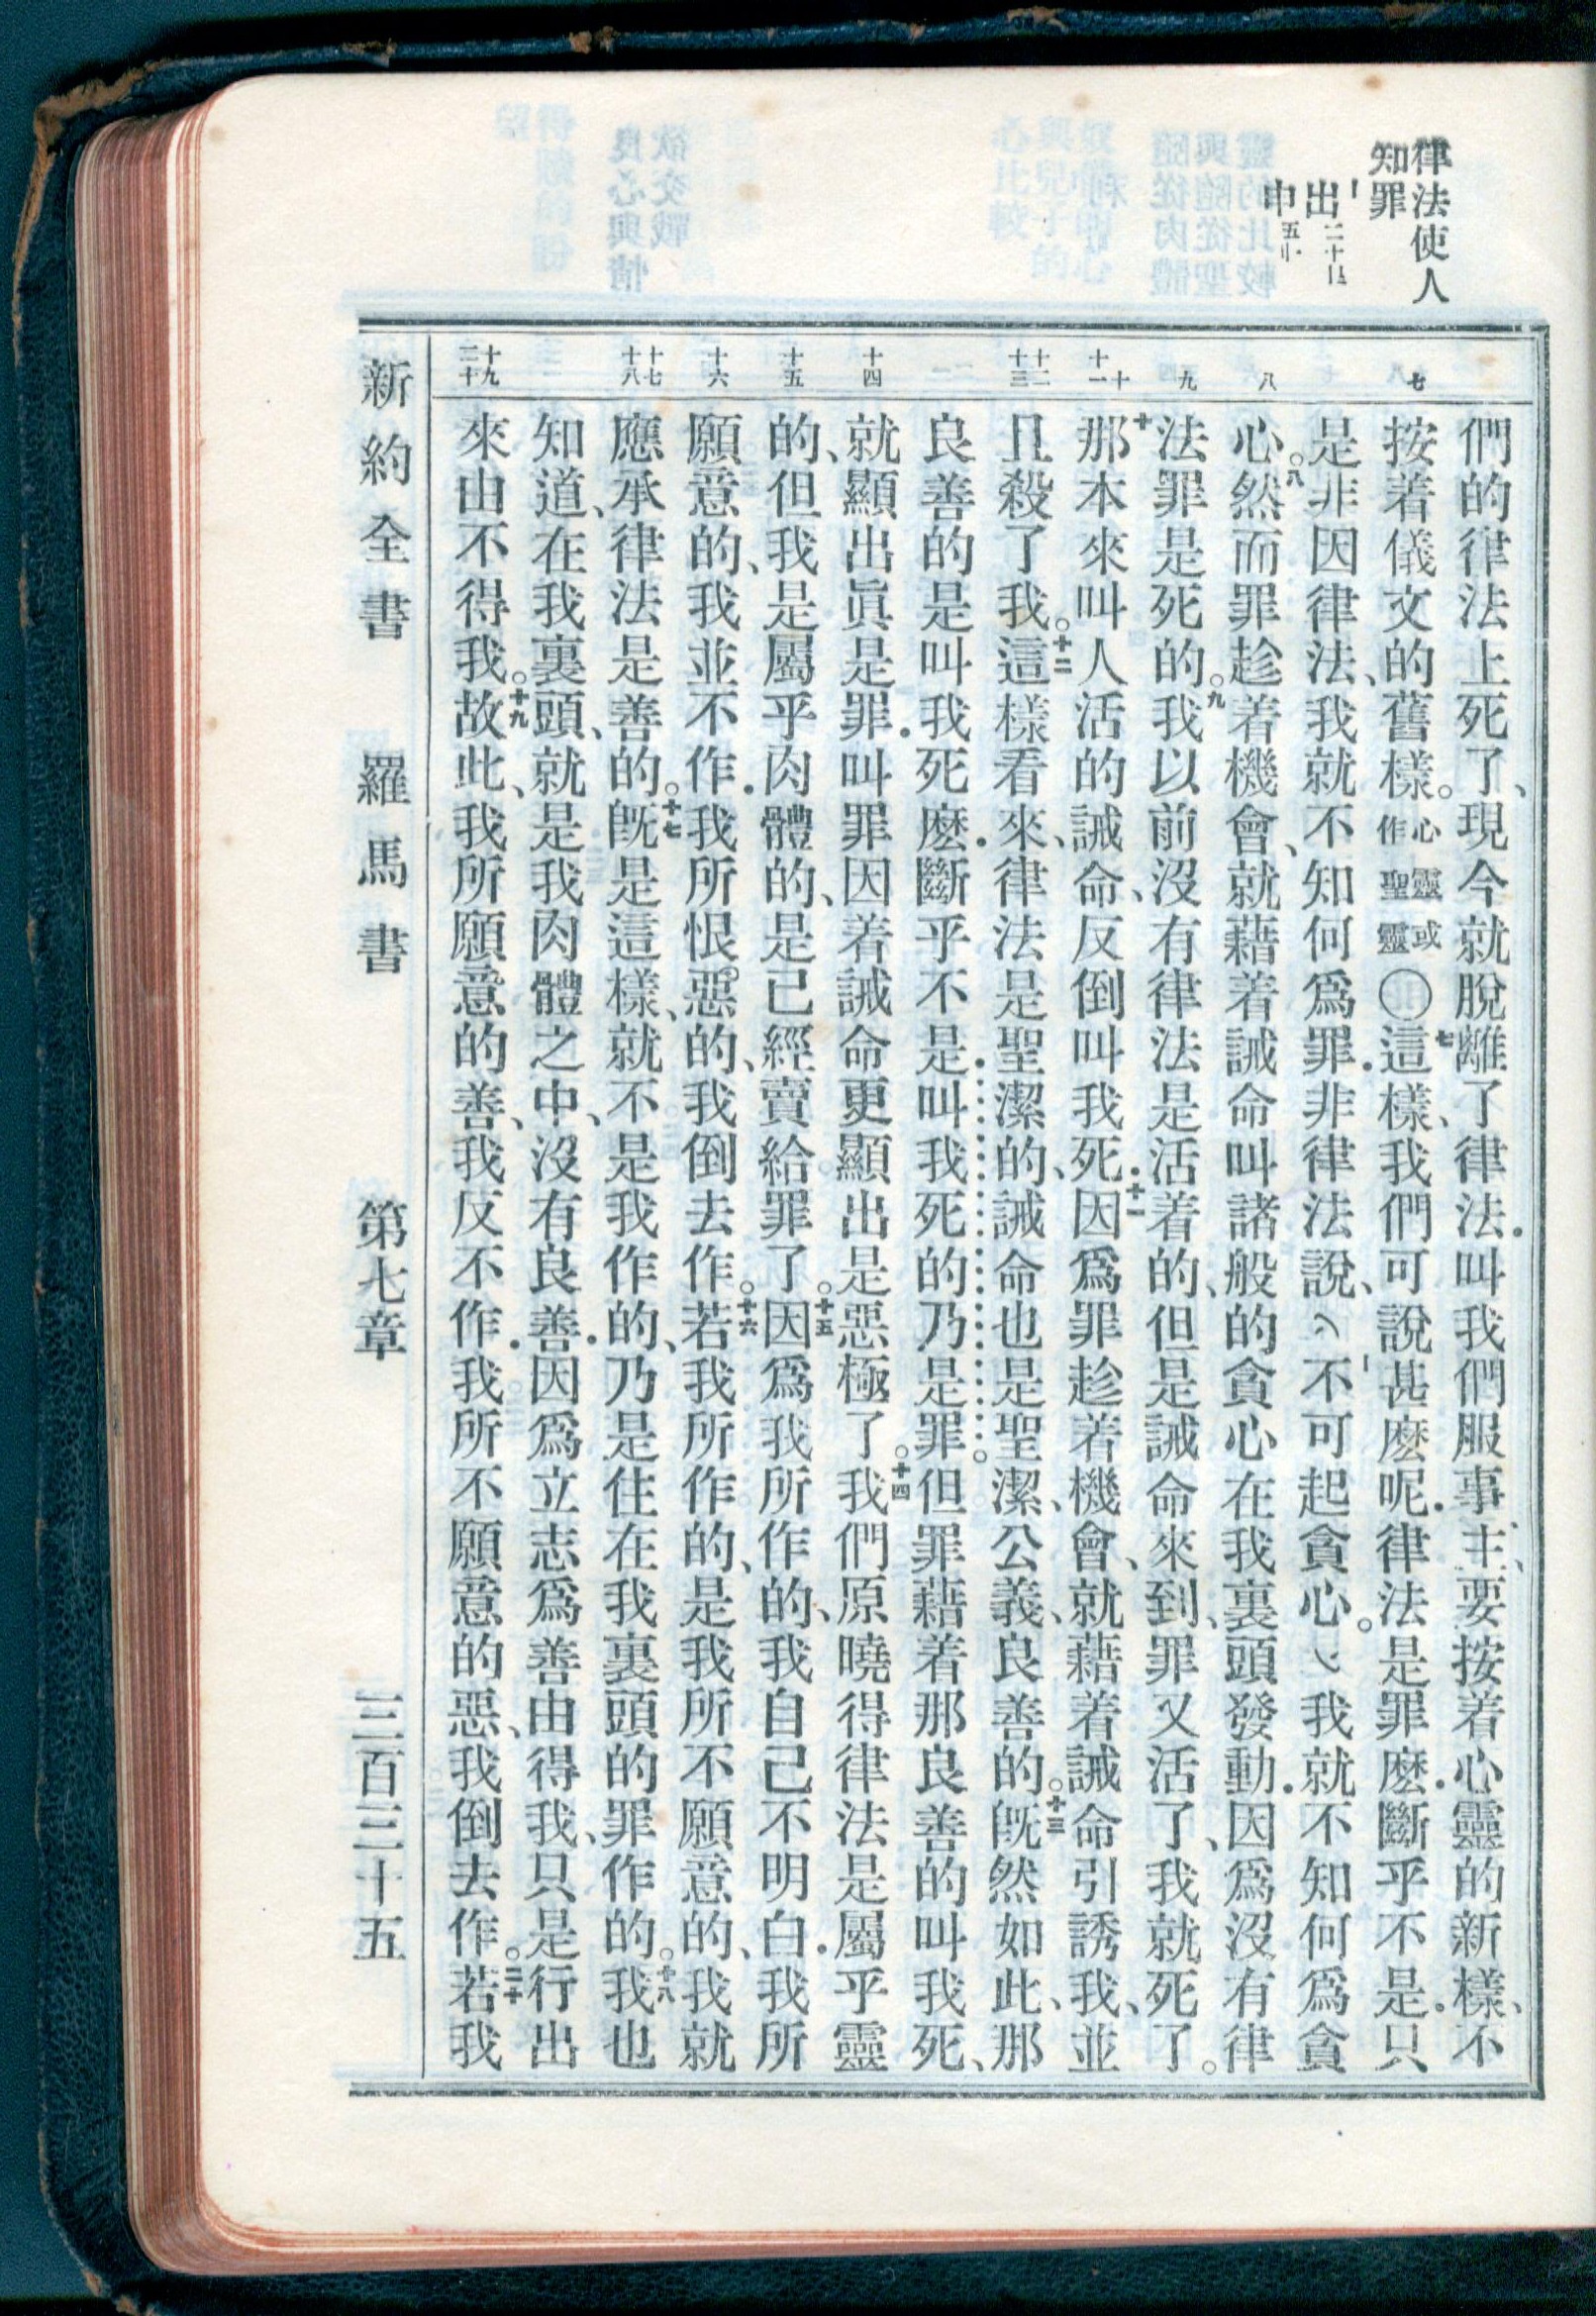 律法使人
知罪
出二十
申五
七
八
九
十
十一
十二
十三
十四
十五
十六
十七
十八
十九
二十
們的律法上死了、現今就脫離了律法．叫我們服事主、要按着心靈的新樣、不
按着儀文的舊樣。心靈或作聖靈〇七這樣、我們可說甚麽呢．律法是罪麽．斷乎不是．只
是非因律法、我就不知何爲罪．非律法說、（不可起貪心。）我就不知何爲貪
心。八然而罪趁着機會、就藉着誡命叫諸般的貪心在我裏頭發動．因爲沒有律
法罪是死的。九我以前沒有律法是活着的、但是誡命來到、罪又活了、我就死了。
十那本來叫人活的誡命、反倒叫我死．十一因爲罪趁着機會、就藉着誡命引誘我、並
且殺了我。十二這樣看來、律法是聖潔的、誡命也是聖潔、公義、良善的。十三既然如此、那
良善的是叫我死麽．斷乎不是．叫我死的乃是罪。但罪藉着那良善的叫我死、
就顯出眞是罪．叫罪因着誡命更顯出是惡極了。十四我們原曉得律法是屬乎靈
的、但我是屬乎肉體的、是已經賣給罪了。十五因爲我所作的、我自己不明白．我所
願意的、我並不作．我所恨惡的、我倒去作。十六若我所作的、是我所不願意的、我就
應承律法是善的。十七既是這樣、就不是我作的、乃是住在我裏頭的罪作的。十八我也
知道、在我裏頭、就是我肉體之中、沒有良善．因爲立志爲善由得我、只是行出
來由不得我。十九故此、我所願意的善、我反不作．我所不願意的惡、我倒去作。二十若我
新約全書　羅馬書　第七章　三百三十五